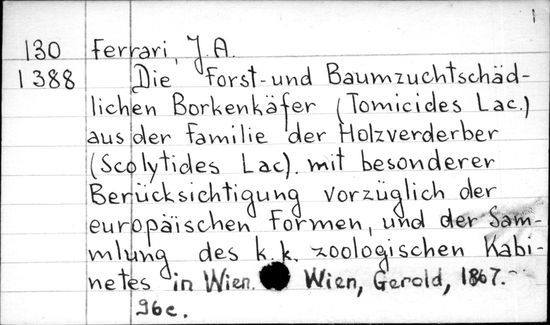 130 Ferrari, J.A.
1388 Die Forst- und Baumzuchtschäd-
lichen Borkenkäfer (Tomicides Lac.)
aus der Familie der Holzverderber
(Scolytides Lac). mit besonderer
Berücksichtigung vorzüglich der
europäischen Formen, und der Sam-
mlung des k.k. zoologischen Kabi-
netes in Wien. Wien, Gerold, 1867.-
96c.